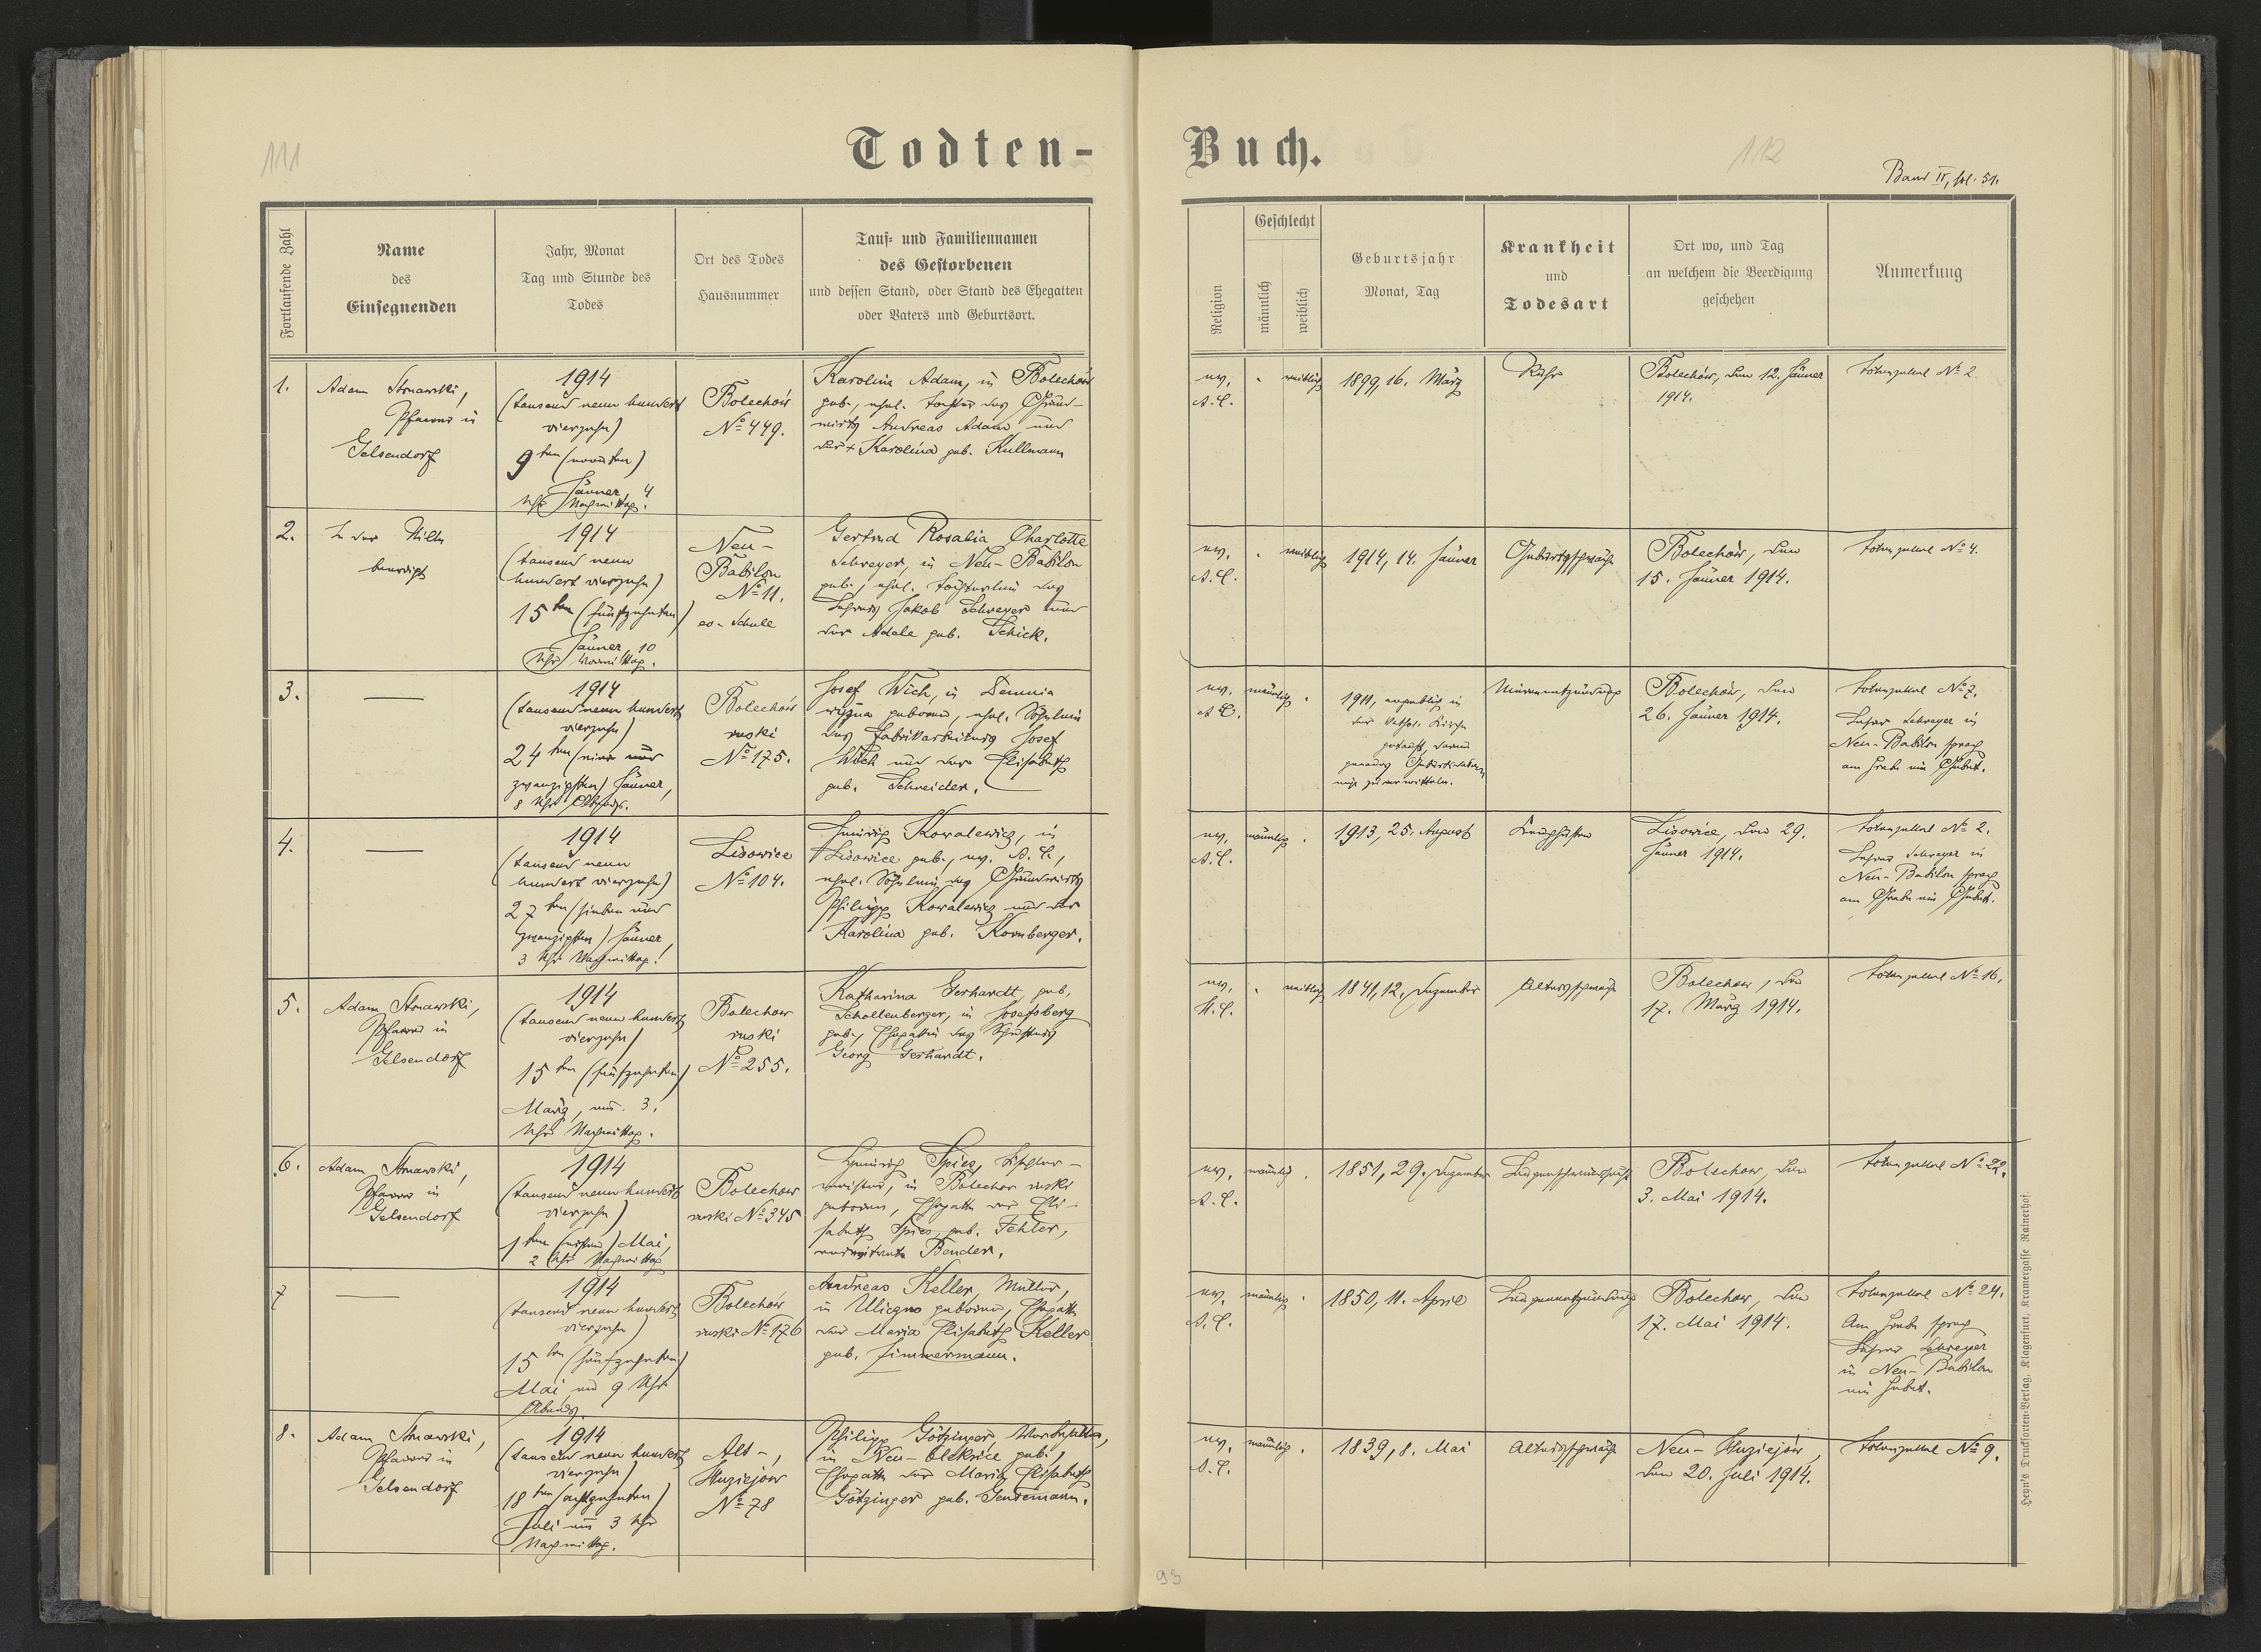 111
Todten-
Buch.
112
Band II, fol. 51.
Fortlaufende Zahl
Name
des
Einsegnenden
Jahr, Monat
Tag und Stunde des
Todes
Ort des Todes
Hausnummer
Tauf- und Familiennamen
des Gestorbenen
und dessen Stand, oder Stand des Ehegatten
oder Vaters und Geburtsort.
Religion
Geschlecht
männlich
weiblich
Geburtsjahr
Monat, Tag
Krankheit
und
Todesart
Ort wo, und Tag
an welchem die Beerdigung
geschehen
Anmerkung
1.
Adam
Pfarrer in
Gelsendorf
1914
(tausend neun hundert
vierzehn)
9ten (neunten)
Jänner, 4
Uhr Nachmittag.
Bolechów
No 449.
Karolina Adam, in Bolechów
geb., ehel. Tochter des Grund-
wirts Andreas Adam und
der + Karolina geb. Kullmann
ev.
A.C.
weiblich
1899, 16. März
Ruhr
Bolechów, den 12. Jänner
1914.
Totenzettel No 2
2.
In der Stille
beerdigt
1914
(tausend neun
hundert vierzehn)
15ten (fünfzehnten)
Jänner, 10
Uhr Vormittag.
Neu-
Babilon
No 11.
ev. Schule
Gertrud Rosalia Charlotte
Schreyer, in Neu-Babilon
geb., ehel. Töchterlein des
Lehrers Jakob Schreyer und
der Adele geb. Schick.
ev.
A.C.
weiblich
1914, 14. Jänner
Geburtsschwäche
Bolechów, den
15. Jänner 1914.
Totenzettel No 4.
3.
1914
(tausend neun hundert
vierzehn)
24ten (vier und
zwanzigsten) Jänner,
8 Uhr Abends.
Bolechów
ruski
No 175.
Josef Wich, in Demnia
wyżna geboren, ehel. Söhnlein
des Fabrikarbeiters Josef
Wich und der Elisabeth
geb. Schneider.
ev.
A.C.
männlich
1911, angeblich in
der kathol. Kirche
getauft, darum
genaues Geburtsdatum
nicht zu ermitteln.
Bolechów, den
26. Jänner 1914.
Totenzettel No 7.
Lehrer Schreyer in
Neu-Babilon sprach
am Grabe ein Gebet.
4.
1914
(tausend neun
hundert vierzehn)
27ten (sieben und
zwanzigsten) Jänner,
3 Uhr Nachmittag.
Lisowice
No 104.
Heinrich Kowalewicz, in
Lisowice geb., ev. A.C.,
ehel. Söhnlein des Grundwirts
Philipp Kowalewicz und der
Karolina geb. Kornberger.
ev.
A.C.
männlich
1913, 25. August
Keuchhusten
Lisowice, den 29.
Jänner 1914.
Totenzettel No 2.
Lehrer Schreyer in
Neu-Babilon sprach
am Grabe ein Gebet.
5.
Adam
Pfarrer in
Gelsendorf
1914
(tausend neun hundert
vierzehn)
15ten (fünfzehnten)
März, um 3.
Uhr Nachmittag.
Bolechow
ruski
No 255.
Katharina Gerhardt geb.
Schollenberger, in Josefsberg
geb., Ehegattin des Schusters
Georg Gerhardt.
ev.
H.C.
weiblich
1841, 12. Dezember
Altersschwäche
Bolechow, den
17. März 1914.
Totenzettel No 16.
6.
Adam
Pfarrer in
Gelsendorf
1914
(tausend neun hundert
vierzehn)
1ten (ersten) Mai,
2 Uhr Nachmittag
Bolechow
ruski No 345
Heinrich Spies, Tischler-
meister, in Bolechow ruski
geboren, Ehegatte der Eli-
sabeth Spies, geb. Fehler,
verwitwete Bender.
ev.
A.C.
männlich
1851, 29. Dezember
Bolechow, den
3. Mai 1914.
Totenzettel No 22.
7
1914
(tausend neun hundert
vierzehn)
15ten (fünfzehnten)
Mai um 9 Uhr
Abends.
Bolechów
ruski No 176
Andreas Keller, Müller,
in Uliczno geboren, Ehegatte
der Maria Elisabeth Keller
geb. Zimmermann.
ev.
A.C.
männlich
1850, 11. April
Lungenentzündung
Bolechow, den
17. Mai 1914.
Totenzettel No 24.
Am Grabe sprach
Lehrer Schreyer
in Neu-Babilon
ein Gebet.
8.
Adam
Pfarrer in
Gelsendorf
1914
(tausend neun hundert
vierzehn)
18ten (achtzehnten)
Juli um 3 Uhr
Nachmittag.
Alt-
Huziejow
No 78
Philipp Götzinger
in Neu-Oleksice geb.,
Ehegatte der Maria Elisabeth
Götzinger geb. Gensemann.
ev.
A.C.
männlich
1839, 8. Mai
Altersschwäche
Neu-Huziejów,
den 20. Juli 1914.
Totenzettel No 9.
Heyn's Drucksorten-Verlag, Klagenfurt, Kramergasse Rainerhof.
93